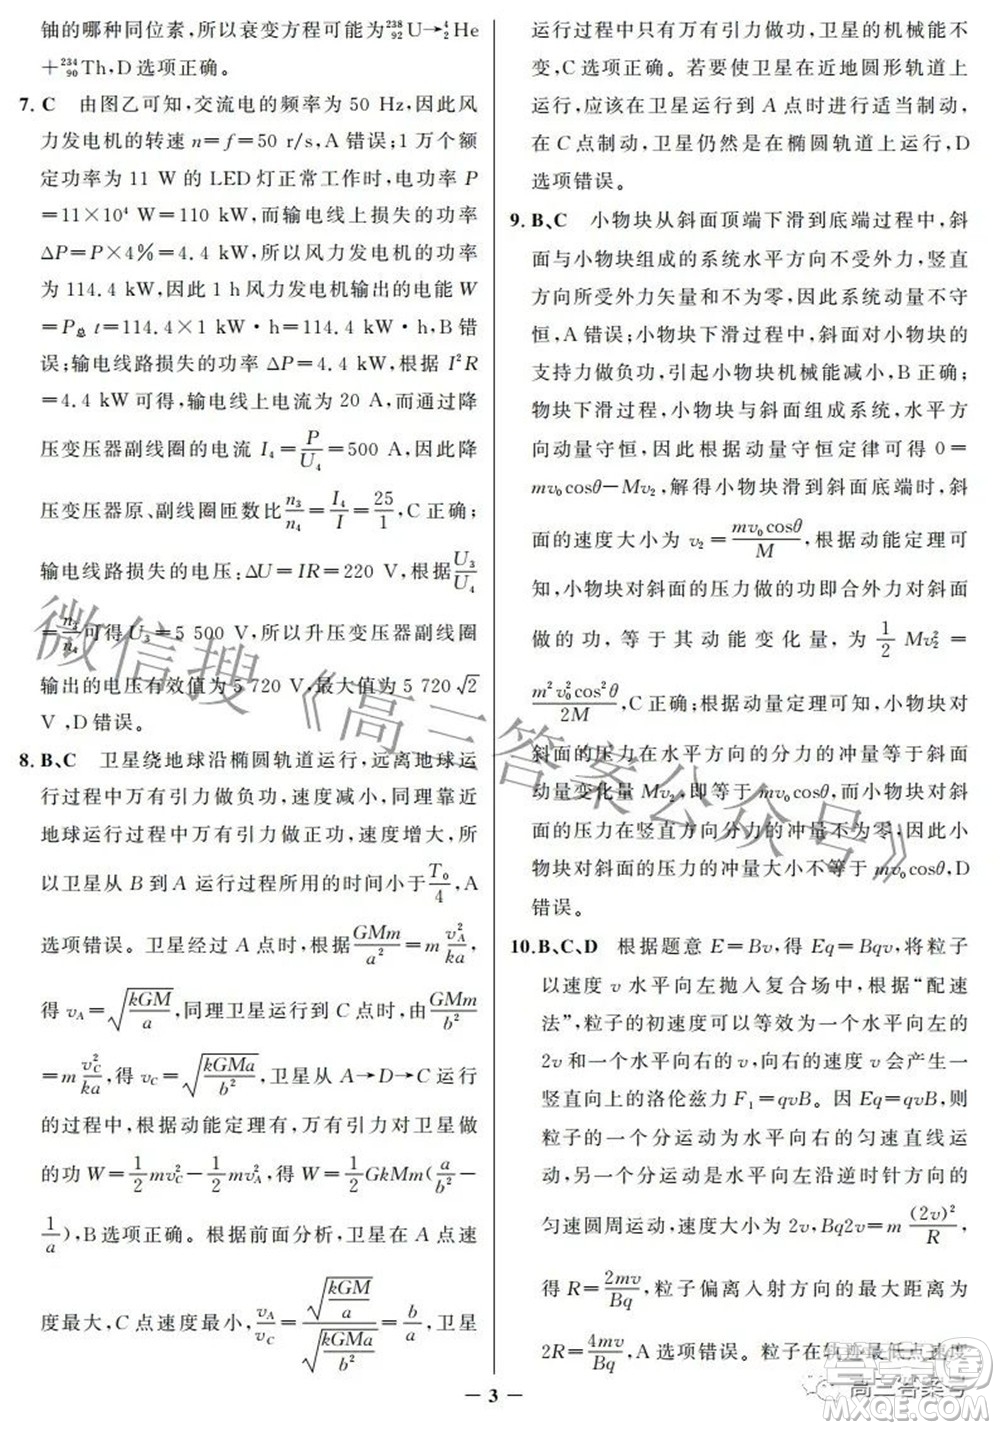 铀的哪种同位素,所以衰变方程可能为$^{238}_{92}$U→$^{4}_{2}$He
+$^{234}_{90}$Th,D 选项正确。
7. C 由图乙可知,交流电的频率为 50 Hz,因此风
力发电机的转速 n=f=50 r/s,A 错误;1 万个额
定功率为 11 W 的 LED 灯正常工作时,电功率 P
=11×10⁴ W=110 kW,而输电线上损失的功率
ΔP=P×4%=4.4 kW,所以风力发电机的功率
为 114.4 kW,因此 1 h 风力发电机输出的电能 W
=P总 t=114.4×1 kW·h=114.4 kW·h,B 错
误;输电线路损失的功率 ΔP=4.4 kW,根据 I²R
=4.4 kW 可得,输电线上电流为 20 A,而通过降
压变压器副线圈的电流 I₄=P/U₄=500 A,因此降
压变压器原、副线圈匝数比 n₃/n₄=I₄/I=25/1,C 正确;
输电线路损失的电压:ΔU=IR=220 V,根据 U₃/U₄
=n₃/n₄可得 U₃=5 500 V,所以升压变压器副线圈
输出的电压有效值为 5 720 V,最大值为 5 720√2
V,D 错误。
8. B、C 卫星绕地球沿椭圆轨道运行,远离地球运
行过程中万有引力做负功,速度减小,同理靠近
地球运行过程中万有引力做正功,速度增大,所
以卫星从 B 到 A 运行过程所用的时间小于 T₀/4,A
选项错误。卫星经过 A 点时,根据 GMm/a²=m v_A²/ka,
得 v_A=√(kGM/a),同理卫星运行到 C 点时,由 GMm/b²
=m v_C²/ka,得 v_C=√(kGMa/b²),卫星从 A→D→C 运行
的过程中,根据动能定理有,万有引力对卫星做
的功 W=1/2 mv_C²-1/2 mv_A²,得 W=1/2 GkMm(a/b²-
1/a),B 选项正确。根据前面分析,卫星在 A 点速
度最大,C 点速度最小,v_A/v_C=√(kGM/a)/√(kGMa/b²)=b/a,卫星
运行过程中只有万有引力做功,卫星的机械能不
变,C 选项正确。若要使卫星在近地圆形轨道上
运行,应该在卫星运行到 A 点时适当制动,
在 C 点制动,卫星仍然是在椭圆轨道上运行,D
选项错误。
9. B、C 小物块从斜面顶端下滑到底端过程中,斜
面与小物块组成的系统水平方向不受外力,竖直
方向所受外力矢量和不为零,因此系统动量不守
恒,A 错误;小物块下滑过程中,斜面对小物块的
支持力做负功,引起小物块机械能减小,B 正确;
物块下滑过程,小物块与斜面组成系统,水平方
向动量守恒,因此根据动量守恒定律可得 0=
mv₀cosθ-Mv₂,解得小物块滑到斜面底端时,斜
面的速度大小为 v₂=mv₀cosθ/M,根据动能定理可
知,小物块对斜面的压力做的功即合外力对斜面
做的功,等于其动能变化量,为 1/2 Mv₂²=
m²v₀²cos²θ/2M,C 正确;根据动量定理可知,小物块对
斜面的压力在水平方向的分力的冲量等于斜面
动量变化量 Mv₂,即等于 mv₀cosθ,而小物块对斜
面的压力在竖直方向分力的冲量不为零,因此小
物块对斜面的压力的冲量大小不等于 mv₀cosθ,D
错误。
10. B、C、D 根据题意 E=Bv,得 Eq=Bqv,将粒子
以速度 v 水平向左抛入复合场中,根据“配速
法”,粒子的初速度可以等效为一个水平向左的
2v 和一个水平向右的 v,向右的速度 v 会产生一
竖直向上的洛伦兹力 F₁=qvB。因 Eq=qvB,则
粒子的一个分运动为水平向右的匀速直线运
动,另一个分运动是水平向左沿逆时针方向的
匀速圆周运动,速度大小为 2v,Bq2v=m (2v)²/R,
得 R=2mv/Bq,粒子偏离入射方向的最大距离为
2R=4mv/Bq,A 选项错误。粒子在轨迹最低点速度
— 3 —
微信搜《高三答案公众号》
高三答案号
答案圈
MXQE.COM